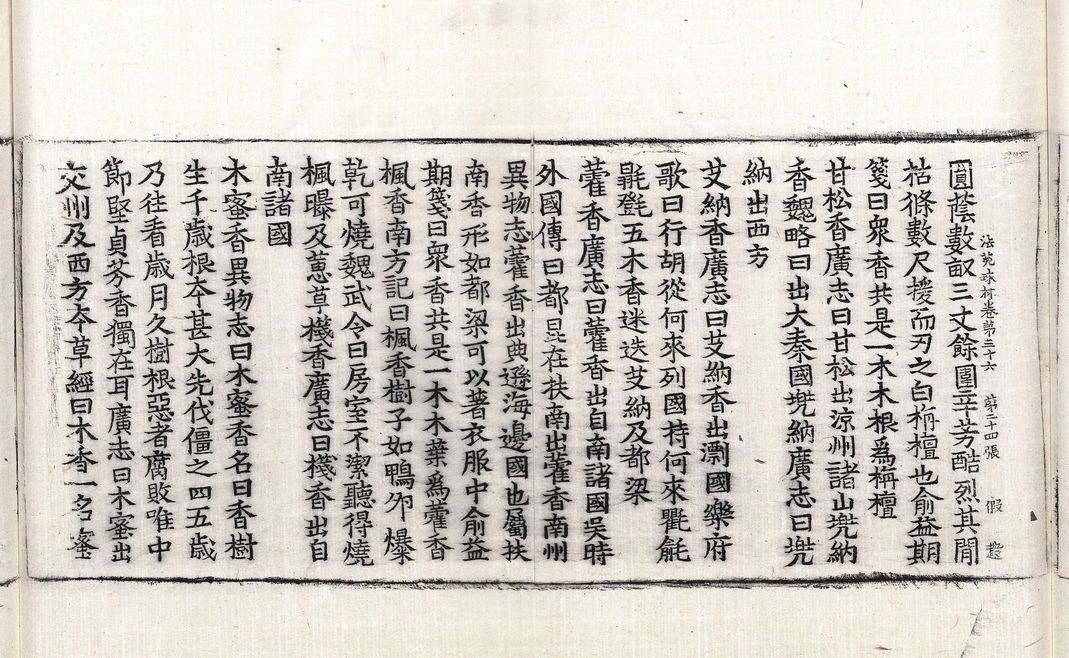 法苑珠林卷第三十六 第二十四張 假
圓蔭數畝三丈餘圍辛芳酷烈其間
枯條數尺援而刃之白栴檀也俞益期
箋曰衆香共是一木木根爲栴檀
甘松香廣志曰甘松出涼州諸山兜納
香魏略曰出大秦國兜納廣志曰兜
納出西方
艾納香廣志曰艾納香出剽國樂府
歌曰行胡從何來列國持何來氍毹
㲪㲪五木香迷迭艾納及都梁
藿香廣志曰藿香出自南諸國吳時
外國傳曰都昆在扶南出藿香南州
異物志藿香出典遜海邊國也屬扶
南香形如都梁可以著衣服中俞益
期箋曰衆香共是一木木葉爲藿香
楓香南方記曰楓香樹子如鴨夘爆
乾可燒魏武令曰房室不潔聽得燒
楓曝及蕙草棧香廣志曰棧香出自
南諸國
木蜜香異物志曰木蜜香名曰香樹
生千歲根夲甚大先伐僵之四五歲
乃往看歲月久樹根惡者腐敗唯中
節堅貞芬香獨在耳廣志曰木蜜出
交州及西方夲草經曰木香一名蜜